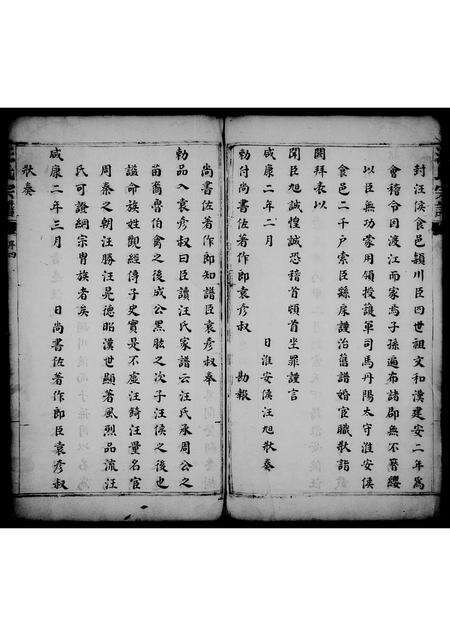 封汪侯食邑潁川臣四世祖文和漢建安二年爲
會稽令因渡江而家焉子孫遍布諸郡無不簪纓
以臣無功蒙用領授護軍司馬丹陽太守淮安侯
食邑二千戶索臣縣庠謹治舊譜婚宦職狀詣
闕拜表以
聞臣旭誠惶誠恐稽首頓首坐罪謹言
咸康二年二月 日淮安侯汪旭狀奏
勅付尚書佐著作郎袁彥叔 勘報
尚書佐著作郎知譜臣袁彥叔奉
勅品入袁彥叔曰臣讀汪氏家譜云汪氏承周公之
苗裔魯伯禽之後成公黑肱之次子汪侯之後也
謚命族姓觀經傳子史實是不虛汪錡汪量名宦
周秦之朝汪勝汪晃德昭漢世顯著風烈品流汪
氏可證綱宗胄族者矣
咸康二年三月 日尚書佐著作郎臣袁彥叔
狀奏